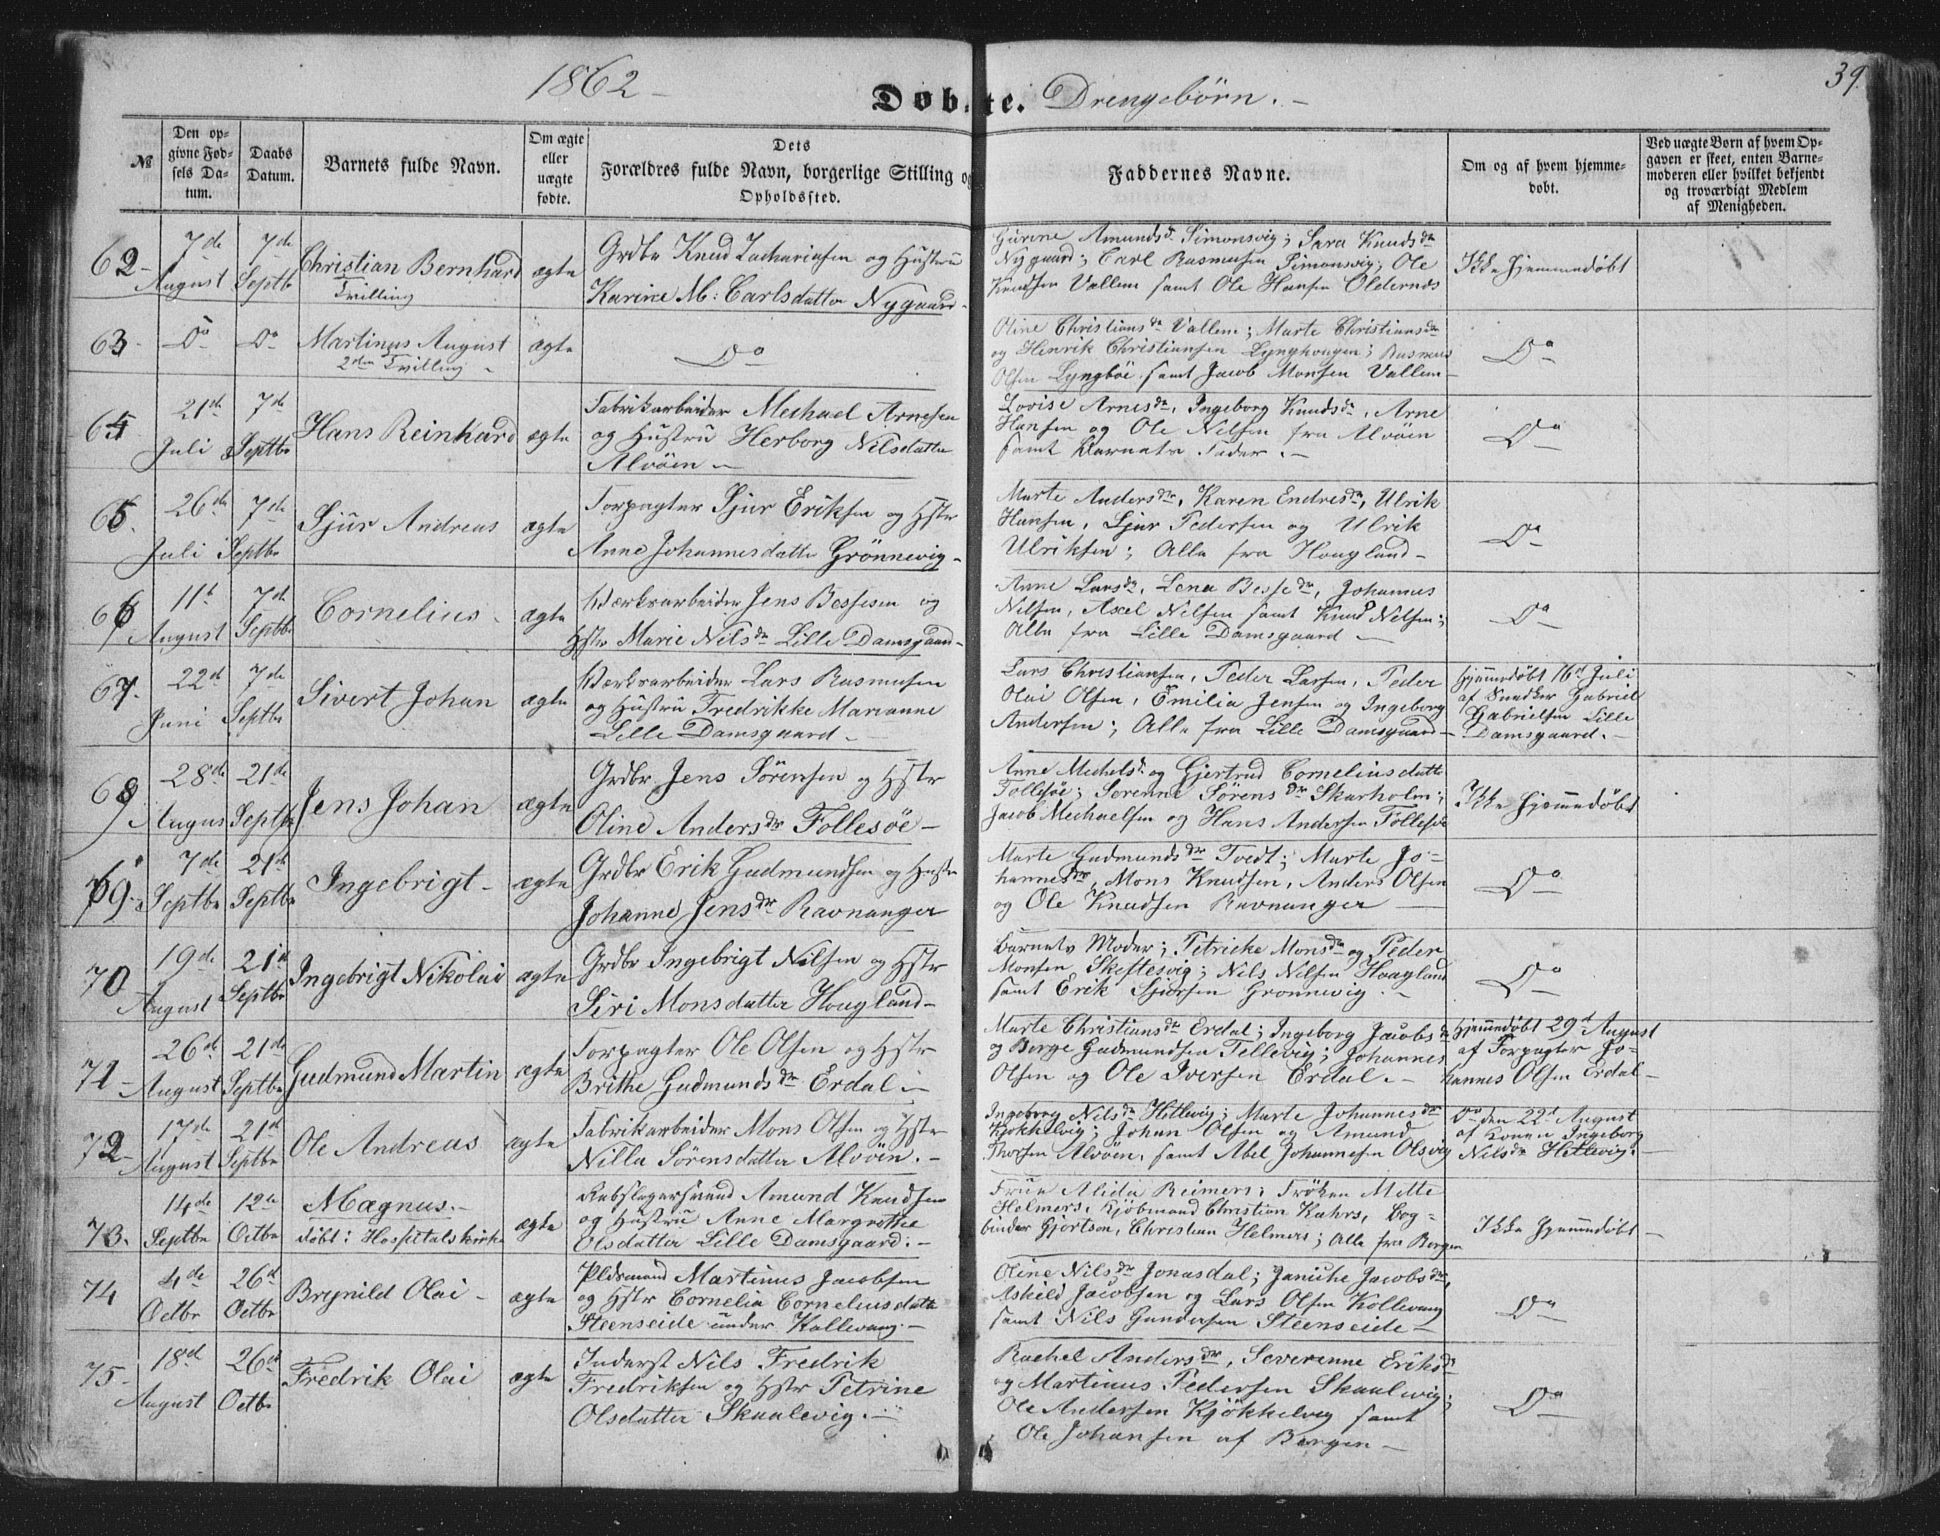 1862 -
Døbte. Drengebørn. -
39.
№
Den opgivne Fødsels Datum.
Daabs Datum.
Barnets fulde Navn.
Om ægte eller uægte fødte.
Dets Forældres fulde Navn, borgerlige Stilling og Opholdssted.
Faddernes Navne.
Om og af hvem hjemmedøbt.
Ved uægte Børn af hvem Opgaven er skeet, enten Barnemoderen eller hvilket bekjendt og troværdigt Medlem af Menigheden.
62 -
7de August
7de Septbr
Christian Bernhard
Tvilling
ægte
Grdbr Knud Zachariasen og Hustru
Karine M: Carlsdatter Nygaard -
Gurine Amundsdr Simonsvig; Sara Knudsdr
Nygaard; Carl Rasmusen Simonsvig; Ole
Knudsen Vallem samt Ole Hansen Oldernæs
Ikke Hjemmedøbt
63 -
Do
Do
Martinus August
2den Tvilling -
ægte
Do
Oline Christiansdr Vallem; Marte Christiansdr
og Henrik Christiansen Lynghougen; Rasmus
Olsen Lyngbøe samt Jacob Monsen Vallem -
Do
64
21de Juli
7de Septbr
Hans Reinhard
ægte
Fabrikarbeider Michael Arnesen
og Hustru Herborg Nilsdatter
Alvøen -
Lovise Arnesdr, Ingeborg Knudsdr, Arne
Hansen og Ole Nilsen fra Alvøen
samt Barnets Fader. -
Do
65.
26de Juli
7de Septbr
Sjur Andreas
ægte
Forpagter Sjur Eriksen og Hstr
Anne Johannesdatter Grønnevig -
Marte Andersdr, Karen Endresdr, Ulrik
Hansen, Sjur Pedersen og Ulrik
Ulriksen; Alle fra Hougland -
Do
66
11te August
7de Septbr
Cornelius -
ægte
Værksarbeider Jens Bessesen og
Hstr Marie Nilsdr Lille Damsgaard -
Anne Larsdr, Lena Bessedr, Johannes
Nilsen, Axel Nilsen samt Knud Nilsen;
Alle fra Lille Damsgaard -
Do
67.
22de Juni
7de Septbr
Sivert Johan
ægte
Værksarbeider Lars Rasmusen
og Hustru Fredrikke Marianne
Lille Damsgaard -
Lars Christiansen, Peder Larsen, Peder
Olai Olsen, Emilia Jensen og Ingeborg
Andersen; Alle fra Lille Damsgaard -
Hjemmedøbt 16d Juli
af Snedker Gabriel
Gabrielsen Lille
Damsgaard. -
68
28de August
21de Septbr
Jens Johan
ægte
Grdbr Jens Sørensen og Hstr
Oline Andersdr Follesøe -
Anne Michelsdr og Gjertrud Corneliusdatter
Follesøe; Sorenne Sørensdr Skarholm;
Jacob Michaelsen og Hans Andersen Follesøe
Ikke Hjemmedøbt
69.
7de Septbr
21de Septbr
Ingebrigt -
ægte
Grdbr Erik Gudmundsen og Hustr
Johanne Jensdr Ravnanger
Marte Gudmundsdr Tvedt; Marte Jo-
hannesdr, Mons Knudsen, Anders Olsen
og Ole Knudsen Ravnanger -
Do
70
19de August
21de Septbr
Ingebrigt Nikolai
ægte
Grdbr Ingebrigt Nilsen og Hstr
Siri Monsdatter Hougland -
Barnets Moder; Petricke Monsdr og Peder
Monsen Skeftesvig; Nils Nilsen Hougland
samt Erik Sjursen Grønnevig. -
Do
71 -
26de August
21de Septbr
Gudmund Martin
ægte
Forpagter Ole Olsen og Hstr
Brithe Gudmundsdr Erdal -
Marte Christiansdr Erdal; Ingeborg Jacobsdr
og Børge Gudmundsen Tellevig; Johannes
Olsen og Ole Iversen Erdal. -
Hjemmedøbt 29d August
af Forpagter Jo-
hannes Olsen Erdal -
72 -
17de August
21de Septbr
Ole Andreas
ægte
Fabrikarbeider Mons Olsen og Hstr
Nilla Sørensdatter Alvøen. -
Ingeborg Nilsdr Hetlevig; Marte Johannesdr
Kjøkkelvig; Johan Olsen og Amund
Thorsen Alvøen, samt Abel Johannesen Olsvig
Do den 22d August
af Konen Ingeborg
Nilsdr Hetlevig.
73.
14de Septbr
12te Octbr
Magnus. -
døbt i Hospitalskirken
ægte
Rebslagersvend Amund Knudsen
og Hustru Anne Margrethe
Olsdatter Lille Damsgaard. -
Frue Alida Reimers; Frøken Mette
Helmers, Kjöbmand Christian Kahrs, Bog-
binder Gjørtsen, Christian Helmers; Alle fra Bergen
Ikke Hjemmedøbt -
74
4de Octbr
26de Octbr
Brynild Olai -
ægte
Pldsmand Martinus Jacobsen
og Hstr Cornelia Corneliusdatter
Steenseide under Kollevaag. -
Oline Nilsdr Jonasdal; Janiche Jacobsdr,
Askild Jacobsen og Lars Olsen Kollevaag
samt Nils Gundersen Steenseide -
Do
75 -
18de August
26de Octbr
Fredrik Olai
ægte
Inderst Nils Fredrik
Fredriksen og Hstr Petrine
Olsdatter Skaalevig. -
Rachel Andersdr, Severenne Eriksdr
og Martinus Pedersen Skaalevig;
Ole Andersen Kjøkkelvig samt
Ole Johansen af Bergen -
Do